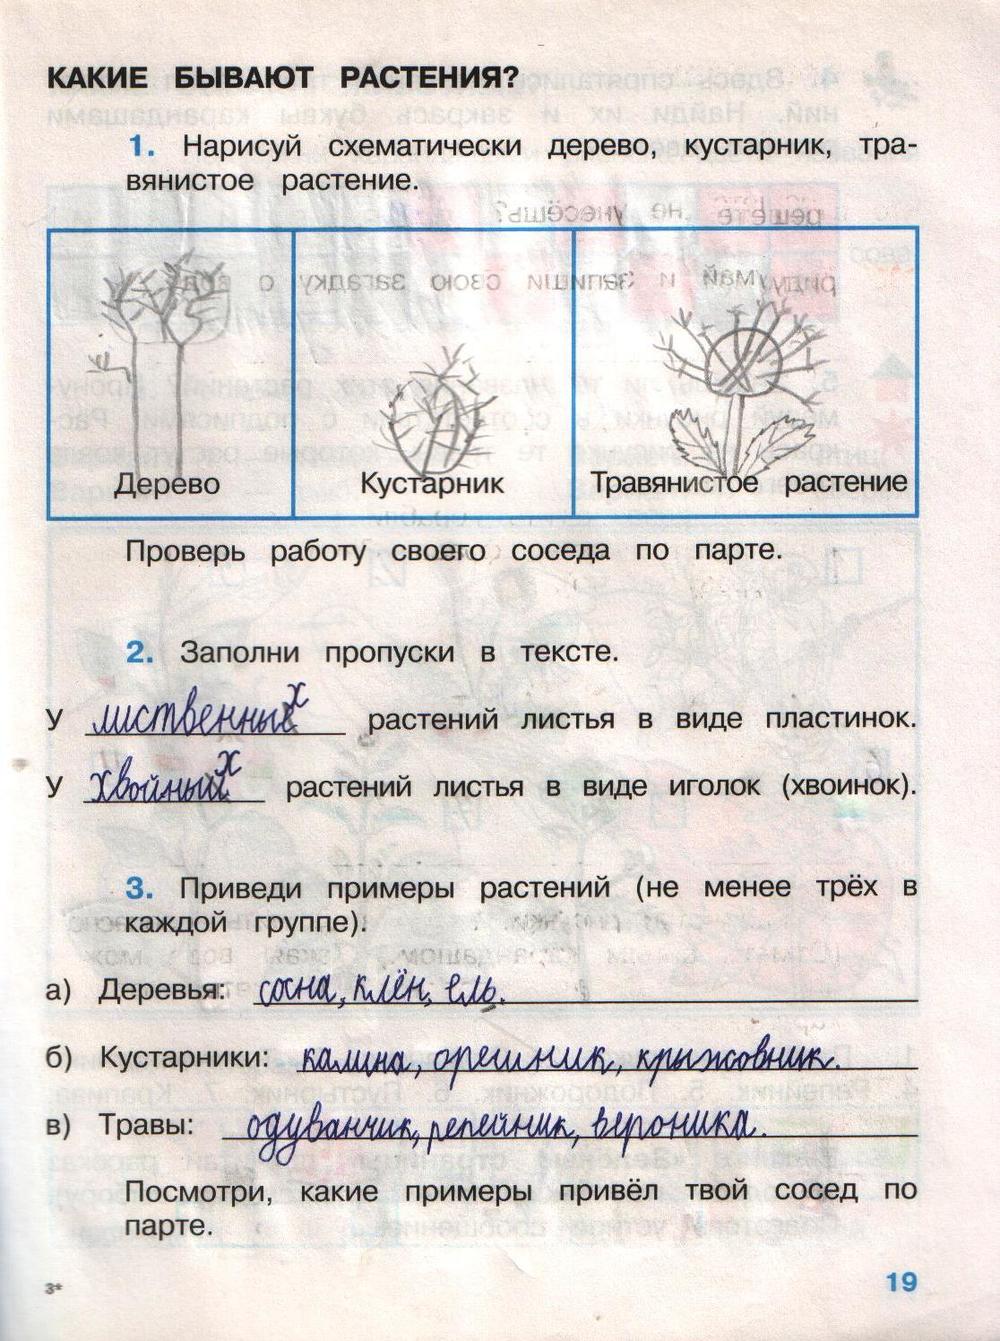 КАКИЕ БЫВАЮТ РАСТЕНИЯ?
1. Нарисуй схематически дерево, кустарник, тра-
вянистое растение.
Дерево
Кустарник
Травянистое растение
Проверь работу своего соседа по парте.
2. Заполни пропуски в тексте.
У лиственных растений листья в виде пластинок.
У хвойных растений листья в виде иголок (хвоинок).
3. Приведи примеры растений (не менее трёх в
каждой группе).
а) Деревья: сосна, клён, ель.
б) Кустарники: калина, орешник, крыжовник.
в) Травы: одуванчик, репейник, вероника.
Посмотри, какие примеры привёл твой сосед по
парте.
3*
19